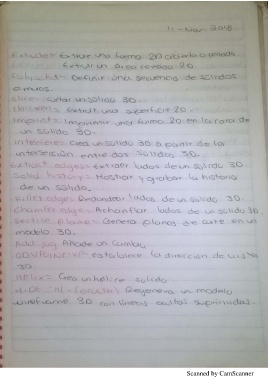 11-Nov-2018
Extrude: Extruir una forma 2D abierta o cerrada
Extruir un área cerrada 2D.
Polysolid: Definir una secuencia de sólidos
o muros.
Slice: Cortar un sólido 3D.
Thicken: Extruir una superficie 2D.
Imprint: Imprimir una forma 2D en la cara de
un sólido 3D.
Interfere: Crea un sólido 3D a partir de la
intersección entre dos sólidos 3D.
Extract edges: Extraer lados de un sólido 3D.
Solid history: Mostrar y grabar la historia
de un sólido.
Fillet edge: Redondear lados de un sólido 3D.
Chamfer edge: Achanflar lados de un sólido 3D.
Section plane: Genera planos de corte en un
modelo 3D.
Add jog: Añade un
establece la dirección de vista
3D.
Helix: Crea un hélice sólido
Regenera un modelo
wireframe 3D con líneas ocultas suprimidas.
Scanned by CamScanner